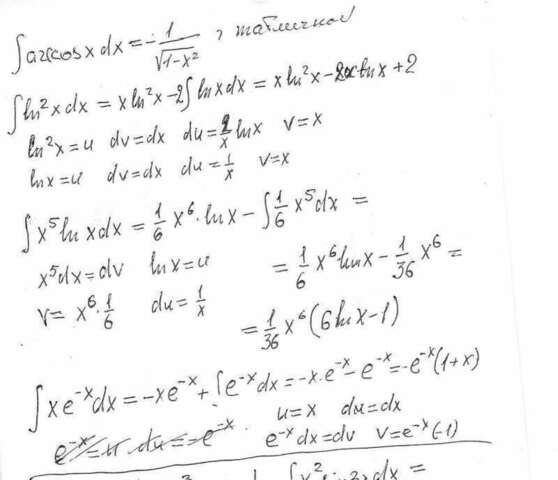 ∫arccos x dx = -1/√(1-x²) , табличной
∫ln²x dx = x ln²x - 2∫ln x dx = x ln²x - 2x ln x + 2
ln²x = u dv = dx du = 2/x ln x v = x
ln x = u dv = dx du = 1/x v = x
∫x⁵ ln x dx = 1/6 x⁶ · ln x - ∫1/6 x⁵ dx =
x⁵dx = dv ln x = u = 1/6 x⁶ ln x - 1/36 x⁶ =
v = x⁶ · 1/6 du = 1/x
= 1/36 x⁶ (6 ln x - 1)
∫x e⁻ˣ dx = -x e⁻ˣ + ∫e⁻ˣ dx = -x · e⁻ˣ - e⁻ˣ = -e⁻ˣ(1+x)
u = x du = dx
e⁻ˣ dx = dv v = e⁻ˣ(-1)